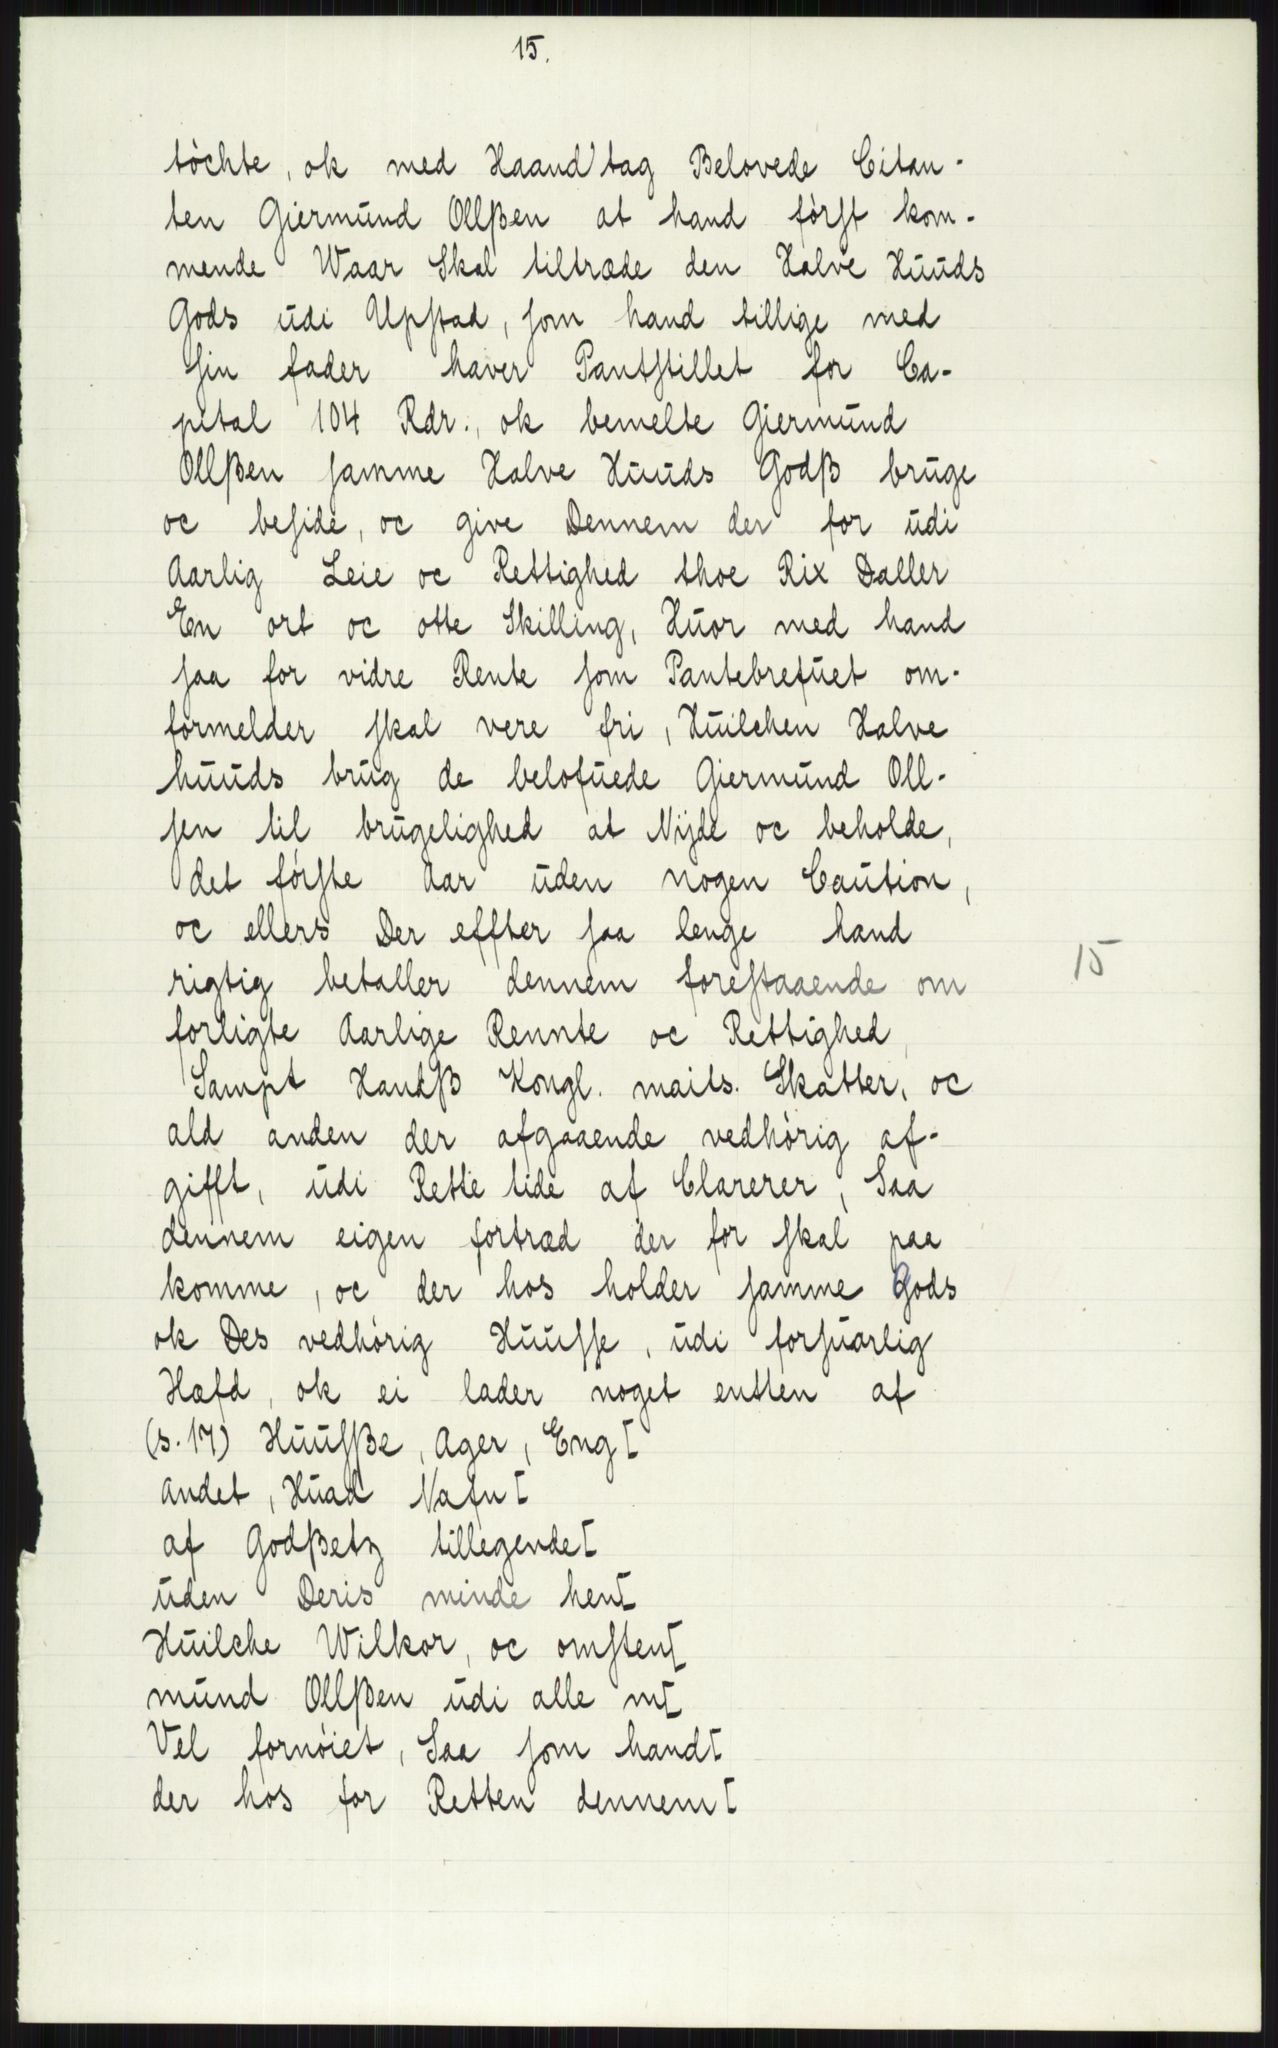 15.
töchte, ok med Haand'tag Belovede Citan-
ten Giermund Ollßen at hand först kom-
mende Waar Skal tiltræde den Halve Huuds
Gods udi Upstad, som hand tillige med
sin fader haver Pantstillet for Ca-
pital 104 Rdr., ok bemelte Giermund
Ollßen samme Halve Huuds Godß bruge
oc beside, oc give Dennem der for udi
Aarlig Leie oc Rettighed thoe Rix Daller
En ort oc otte Skilling, Huor med hand
saa for vidre Rente som Pantebrefuet om-
formelder skal vere fri, Huilchen Halve
huuds brug de belofuede Giermund Oll-
sen til brugelighed at Nÿde oc beholde,
det förste Aar uden nogen Caution,
oc ellers Der effter saa lenge hand
rigtig betaller dennem forestaaende om
15
forligte Aarlige Rennte oc Rettighed,
Sampt Handß Kongl. maits. Skatter, oc
ald anden der afgaaende vedhörig af-
gifft, udi Rette tide af Clarerer, Saa
dennem eigen fortræd der for skal paa
komme, oc der hos holder samme Gods
ok Des vedhörig Huusse, udi forsuarlig
Hæfd, ok ei lader noget entten af
(s. 17) Huusße, Ager, Eng[
Andet, Huad Nafn[
af Godßetz tillegende[
uden Deris minde hen[
Huilche Wilkor, oc omsten[
mund Ollßen udi alle m[
Vel fornöiet, Saa som hand[
der hos for Retten dennem[